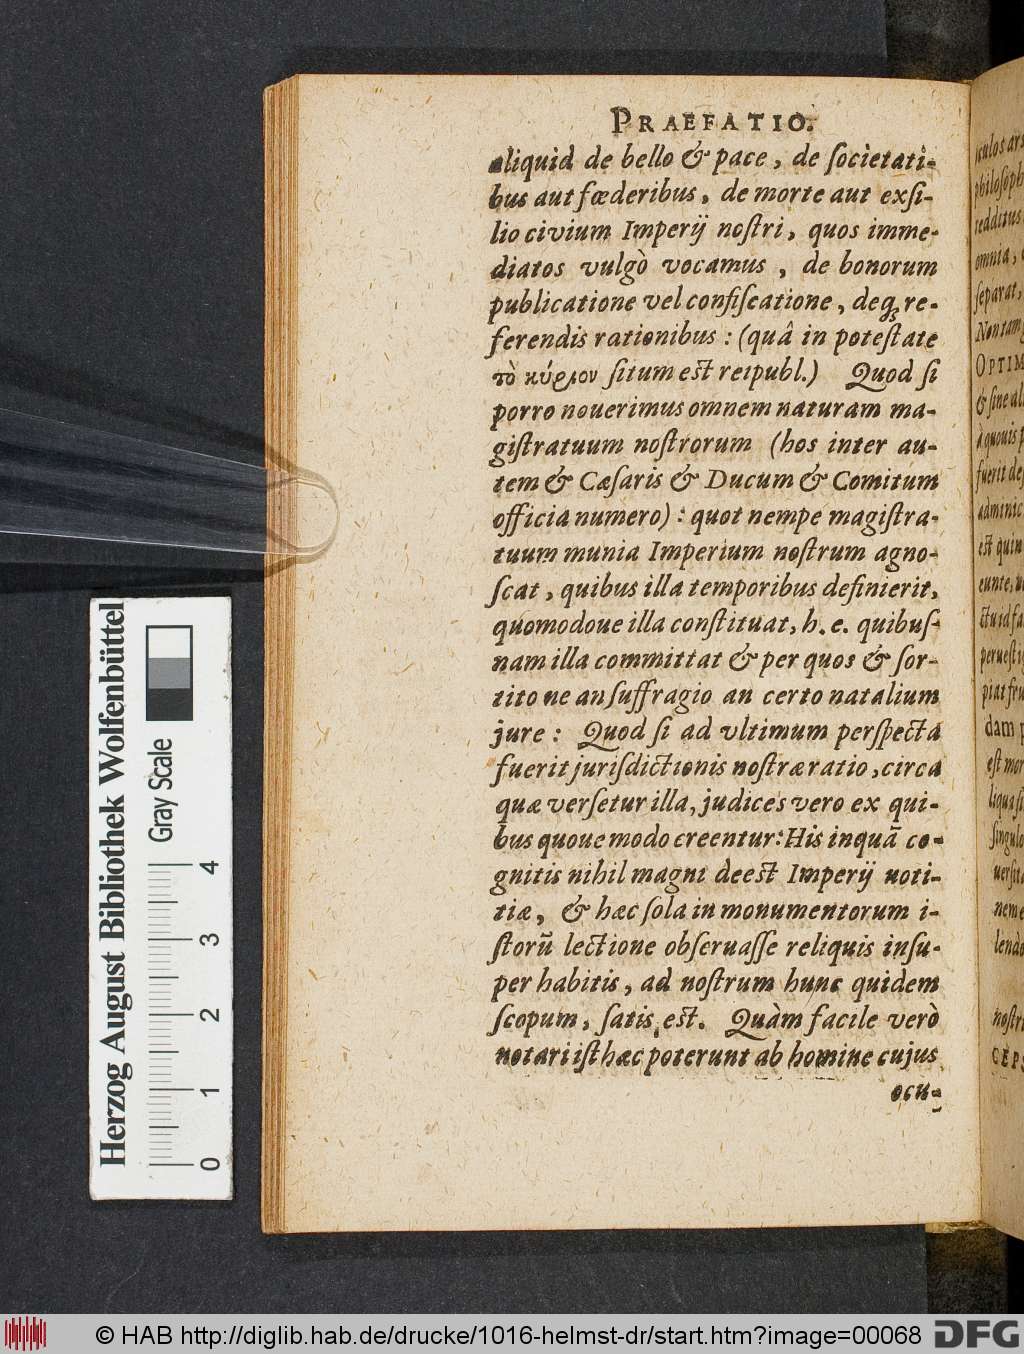 PRAEFATIO.
aliquid de bello & pace, de ſocietati-
bus aut fœderibus, de morte aut exſi-
lio civium Imperij noſtri, quos imme-
diatos vulgò vocamus, de bonorum
publicatione vel confiſcatione, deq́; re-
ferendis rationibus: (quâ in poteſtate
τὸ κύριον ſitum eſt reipubl.) Quod ſi
porro nouerimus omnem naturam ma-
giſtratuum noſtrorum (hos inter au-
tem & Cæſaris & Ducum & Comitum
officia numero): quot nempe magiſtra-
tuum munia Imperium noſtrum agno-
ſcat, quibus illa temporibus definierit,
quomodoue illa conſtituat, h. e. quibuſ-
nam illa committat & per quos & ſor-
tito ne an ſuffragio an certo natalium
jure: Quod ſi ad vltimum perſpecta
fuerit jurisdictionis noſtræ ratio, circa
quæ verſetur illa, judices vero ex qui-
bus quoue modo creentur: His inquā co-
gnitis nihil magni deeſt Imperij noti-
tiæ, & hæc ſola in monumentorum i-
ſtorū lectione obſeruaſſe reliquis inſu-
per habitis, ad noſtrum hunc quidem
ſcopum, ſatis eſt. Quàm facile verò
notari iſthæc poterunt ab homine cujus
ocu-
Herzog August Bibliothek Wolfenbüttel
Gray Scale
0 1 2 3 4
© HAB http://diglib.hab.de/drucke/1016-helmst-dr/start.htm?image=00068
DFG